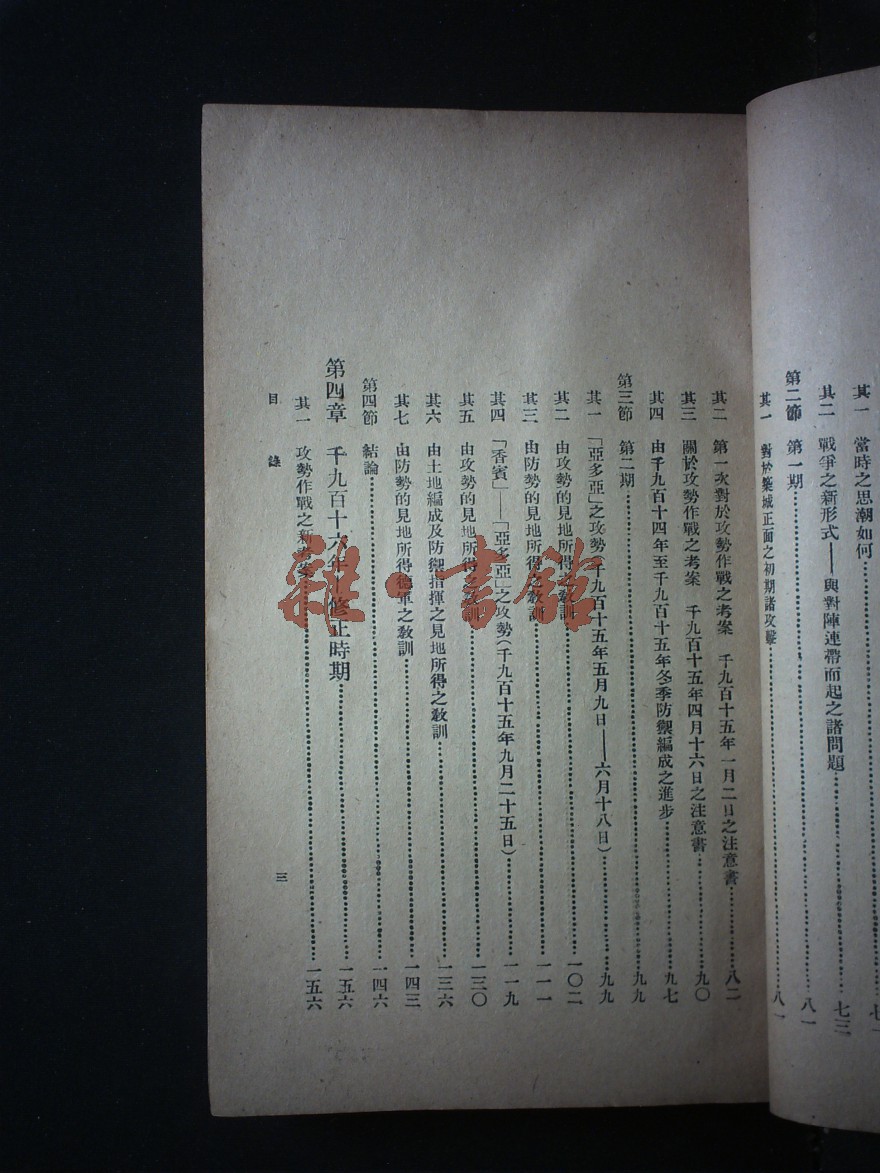 其一　當時之思潮如何……七一
其二　戰爭之新形式——與對陣連帶而起之諸問題……七三
第二節　第一期……八一
其一　對於築城正面之初期諸攻擊……八一
其二　第一次對於攻勢作戰之考案　千九百十五年一月二日之注意書……八二
其三　關於攻勢作戰之考案　千九百十五年四月十六日之注意書……九〇
其四　由千九百十四年至千九百十五年冬季防禦編成之進步……九七
第三節　第二期……九九
其一　「亞多亞」之攻勢(千九百十五年五月九日——六月十八日)……九九
其二　由攻勢的見地所得之教訓……一〇二
其三　由防勢的見地所得之教訓……一一一
其四　「香賓」——「亞多亞」之攻勢(千九百十五年九月二十五日)……一一九
其五　由攻勢的見地所得之教訓……一三〇
其六　由土地編成及防禦指揮之見地所得之教訓……一三六
其七　由防勢的見地所得德軍之教訓……一四三
第四節　結論……一四六
第四章　千九百十六年　修正時期……一五六
其一　攻勢作戰之新考案……一五六
目錄　三
雜·書館